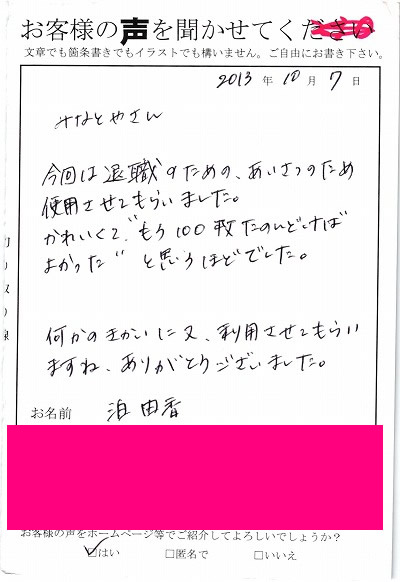 お客様の声を聞かせてください
文章でも箇条書きでもイラストでも構いません。ご自由にお書き下さい。
2013年10月7日
みなとやさん
今回は退職のための、あいさつのため
使用させてもらいました。
かわいくて、"もう100枚たのんどけば
よかった"と思うほどでした。
何かのきかいに又、利用させてもらい
ますね、ありがとうございました。
お名前 浜 由香
お客様の声をホームページ等でご紹介してよろしいでしょうか?
☑はい □匿名で □いいえ